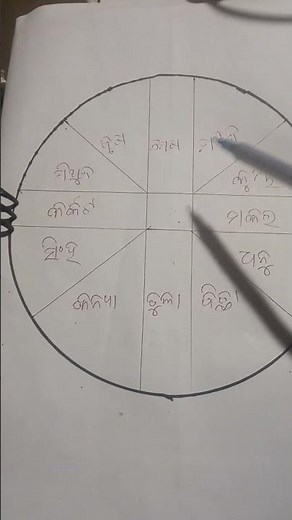 ବୃଷ
ମେଷ
ମିଥୁନ
କର୍କଟ
ମକର
ସିଂହ
ଧନୁ
କନ୍ୟା
ତୁଳା
ବିଛା